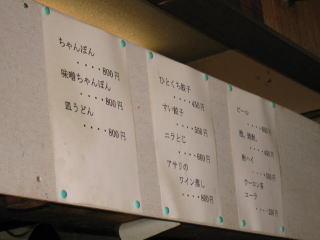 ちゃんぽん
・・・・800円
味噌ちゃんぽん
・・・・800円
皿うどん
・・・・800円
ひとくち餃子
・・・・450円
すい餃子
・・・・500円
ニラとじ
・・・・600円
アサリの
ワイン蒸し
・・・・800円
ビール
酒、焼酎、
酎ハイ
ウーロン茶
コーラ